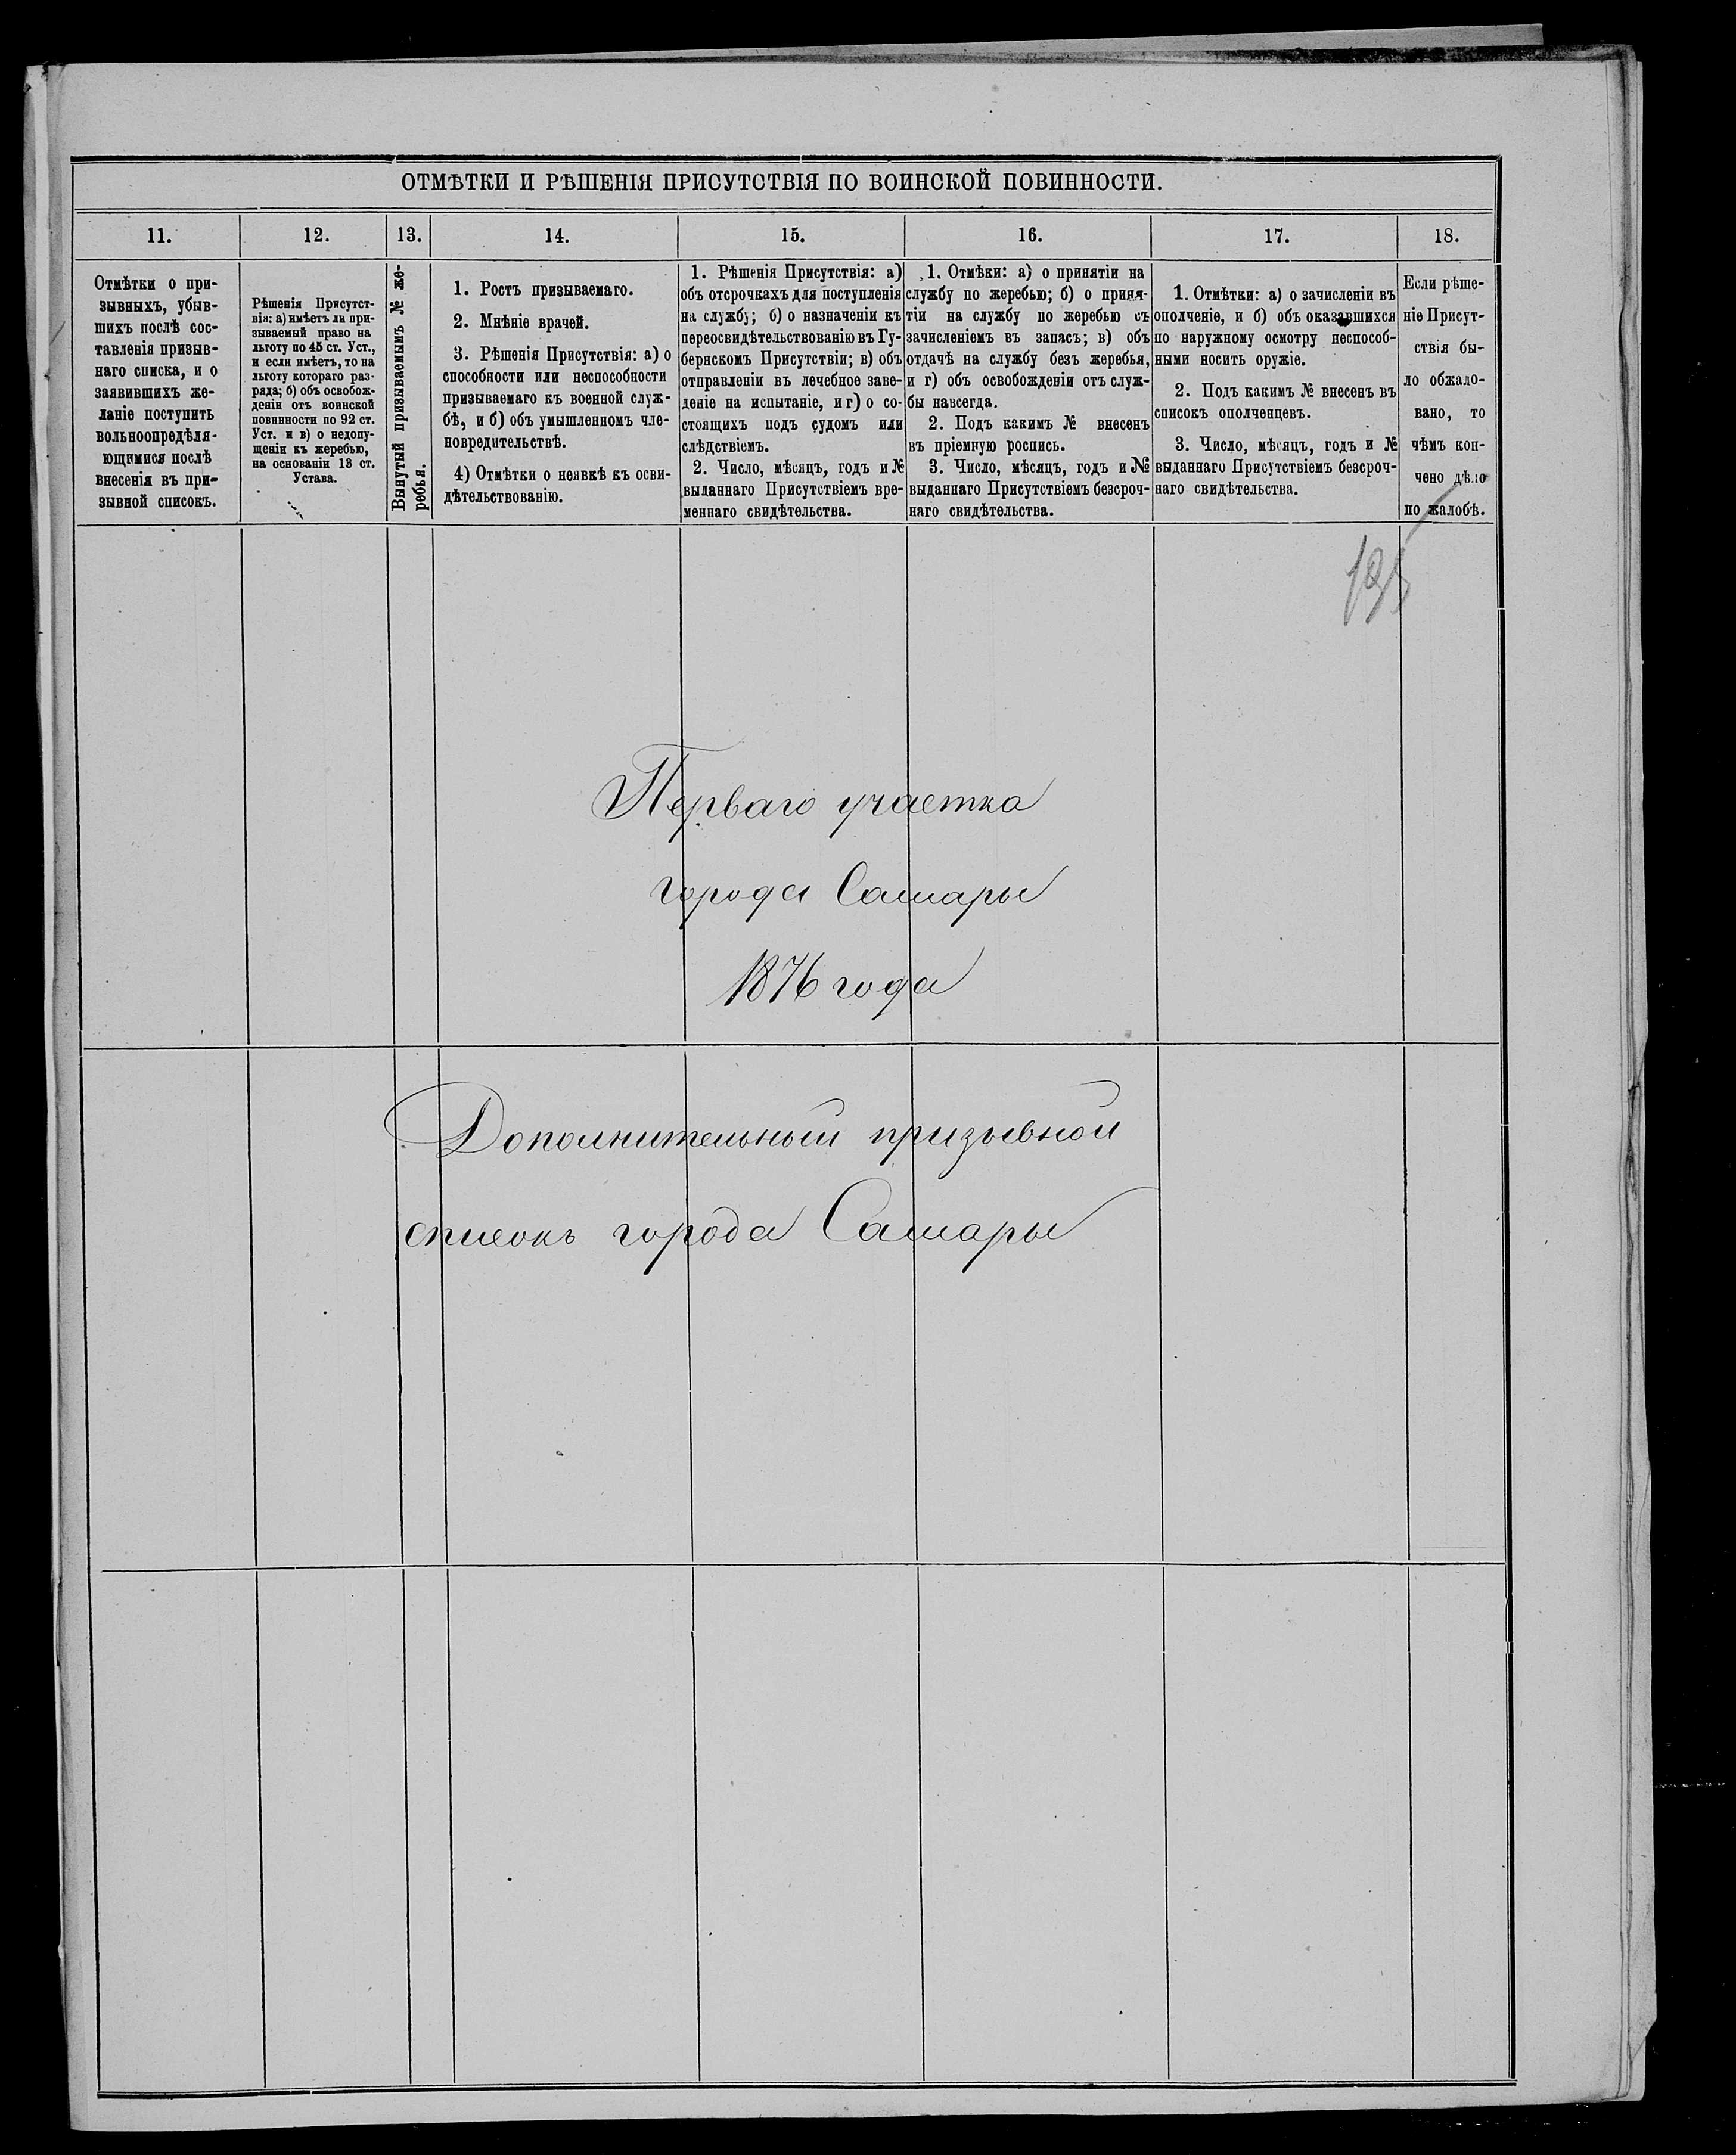 ОТМѢТКИ И РѢШЕНІЯ ПРИСУТСТВІЯ ПО ВОИНСКОЙ ПОВИННОСТИ.
11.
12.
13.
14.
15.
16.
17.
18.
Отмѣтки о при-
зывныхъ, убыв-
шихъ послѣ сос-
тавленія призыв-
наго списка, и о
заявившихъ же-
ланіе поступить
вольноопредѣля-
ющимися послѣ
внесенія въ при-
зывной списокъ.
Рѣшенія Присутст-
вія: а) имѣетъ ли при-
зываемый право на
льготу по 45 ст. Уст.,
и если имѣетъ, то на
льготу котораго раз-
ряда; б) объ освобож-
деніи отъ воинской
повинности по 92 ст.
Уст. и в) о недопу-
щеніи къ жеребью,
на основаніи 13 ст.
Устава.
Вынутый призываемымъ № же-
ребья.
1. Ростъ призываемаго.
2. Мнѣніе врачей.
3. Рѣшенія Присутствія: а) о
способности или неспособности
призываемаго къ военной служ-
бѣ, и б) объ умышленномъ чле-
новредительствѣ.
4) Отмѣтки о неявкѣ къ осви-
дѣтельствованію.
1. Рѣшенія Присутствія: а)
объ отсрочкахъ для поступленія
на службу; б) о назначеніи къ
переосвидѣтельствованію въ Гу-
бернскомъ Присутствіи; в) объ
отправленіи въ лечебное заве-
деніе на испытаніе, и г) о со-
стоящихъ подъ судомъ или
слѣдствіемъ.
2. Число, мѣсяцъ, годъ и №
выданнаго Присутствіемъ вре-
меннаго свидѣтельства.
1. Отмѣки: а) о принятіи на
службу по жеребью; б) о приня-
тіи на службу по жеребью съ
зачисленіемъ въ запасъ; в) объ
отдачѣ на службу безъ жеребья,
и г) объ освобожденіи отъ служ-
бы навсегда.
2. Подъ какимъ № внесенъ
въ пріемную роспись.
3. Число, мѣсяцъ, годъ и №
выданнаго Присутствіемъ безсроч-
наго свидѣтельства.
1. Отмѣтки: а) о зачисленіи въ
ополченіе, и б) объ оказавшихся
по наружному осмотру неспособ-
ными носить оружіе.
2. Подъ какимъ № внесенъ въ
списокъ ополченцевъ.
3. Число, мѣсяцъ, годъ и №
выданнаго Присутствіемъ безсроч-
наго свидѣтельства.
Если рѣше-
ніе Присут-
ствія бы-
ло обжало-
вано, то
чѣмъ кон-
чено дѣло
по жалобѣ.
Перваго участка
города Самары
1876 года
Дополнительный призывной
списокъ города Самары